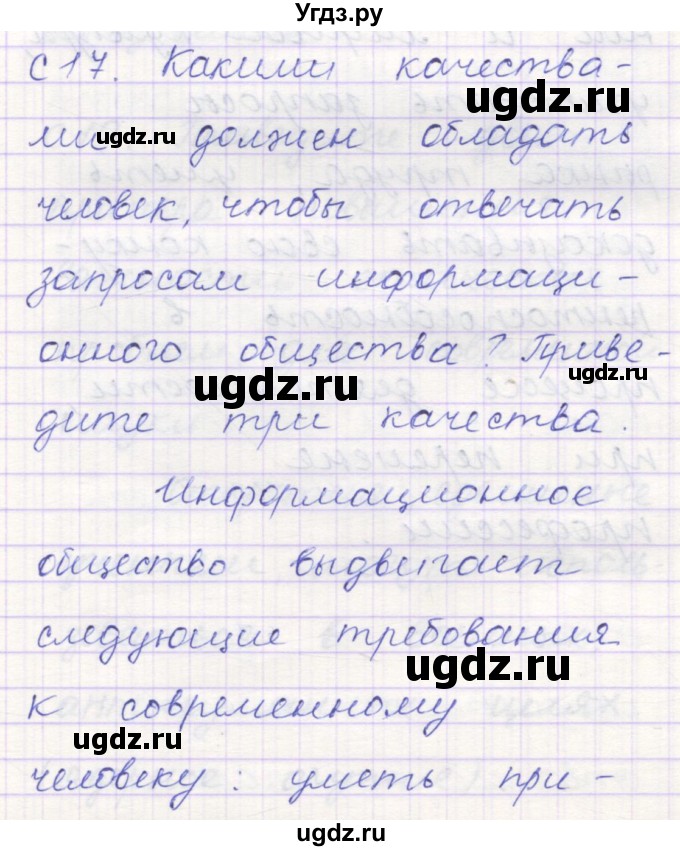 Угдз.ру
С17. Какими качества-
ugdz.ru
ugdz.ru
ми должен обладать
человек, чтобы отвечать
запросам информаци-
онного общества? Приве-
ugdz.ru
ugdz.ru
дите три качества.
Информационное
общество выдвигает
следующие требования
ugdz.ru
к современному
ugdz.ru
человеку: уметь при-
ugdz.ru